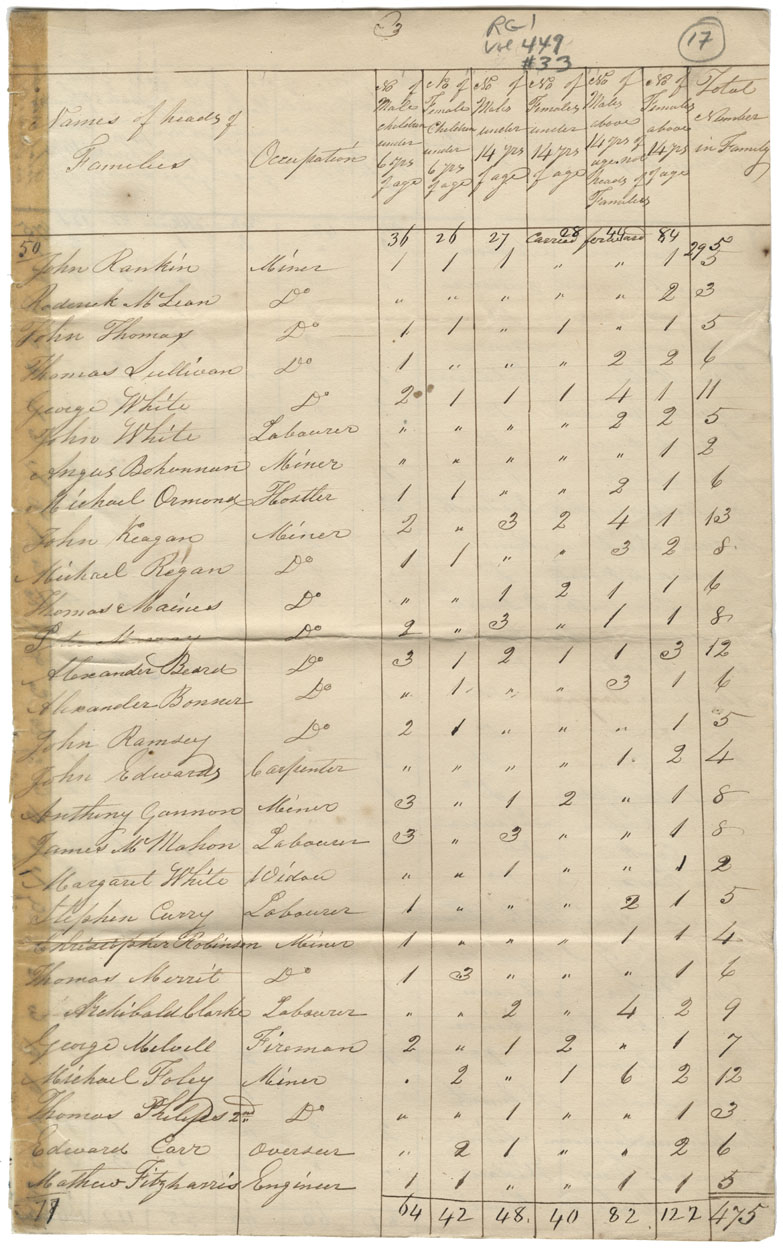 3
RG1
Vol 449
#33
17
Names of heads of Families | Occupation | No of Male children under 6 yrs of age | No of Female Children under 6 yrs of age | No of Males under 14 yrs of age | No of Females under 14 yrs of age | No of Males above 14 yrs of age not heads of Families | No of Females above 14 yrs of age | Total Number in Family
50 | 36 | 26 | 27 | Carried 28 | forward 44 | 84 | 295
John Rankin | Miner | 1 | 1 | 1 | " | " | 1 | 5
Roderick McLean | Do | " | " | " | " | " | 2 | 3
John Thomas | Do | 1 | 1 | " | 1 | " | 1 | 5
Thomas Sullivan | Do | 1 | " | " | " | 2 | 2 | 6
George White | Do | 2 | 1 | 1 | 1 | 4 | 1 | 11
John White | Labourer | " | " | " | " | 2 | 2 | 5
Angus Bohonnan | Miner | " | " | " | " | " | 1 | 2
Michael Ormond | Hostler | 1 | 1 | " | " | 2 | 1 | 6
John Keagan | Miner | 2 | " | 3 | 2 | 4 | 1 | 13
Michael Regan | Do | 1 | 1 | " | " | 3 | 2 | 8
Thomas Maines | Do | " | " | 1 | 2 | 1 | 1 | 6
Do | 2 | " | 3 | " | 1 | 1 | 8
Alexander Beard | Do | 3 | 1 | 2 | 1 | 1 | 3 | 12
Alexander Bonner | Do | " | 1 | " | " | 3 | 1 | 6
John Ramsey | Do | 2 | 1 | " | " | " | 1 | 5
John Edwards | Carpenter | " | " | " | " | 1 | 2 | 4
Anthony Gannon | Miner | 3 | " | 1 | 2 | " | 1 | 8
James McMahon | Labourer | 3 | " | 3 | " | " | 1 | 8
Margaret White | Widow | " | " | 1 | " | " | 1 | 2
Stephen Curry | Labourer | 1 | " | " | " | 2 | 1 | 5
Christopher Robinson | Miner | 1 | " | " | " | 1 | 1 | 4
Thomas Merrit | Do | 1 | 3 | " | " | " | 1 | 6
Archibald Clarke | Labourer | " | " | 2 | " | 4 | 2 | 9
George Melvill | Fireman | 2 | " | 1 | 2 | " | 1 | 7
Michael Foley | Miner | . | 2 | " | 1 | 6 | 2 | 12
Thomas Philips 2nd | Do | " | " | 1 | " | " | 1 | 3
Edward Carr | Overseer | " | 2 | 1 | " | " | 2 | 6
Mathew Fitzharris | Engineer | 1 | 1 | " | " | 1 | 1 | 5
64 | 42 | 48 | 40 | 82 | 122 | 475